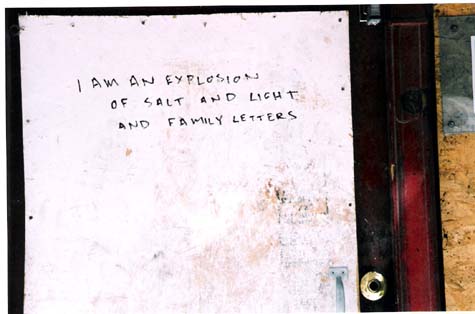 I AM AN EXPLOSION
OF SALT AND LIGHT
AND FAMILY LETTERS